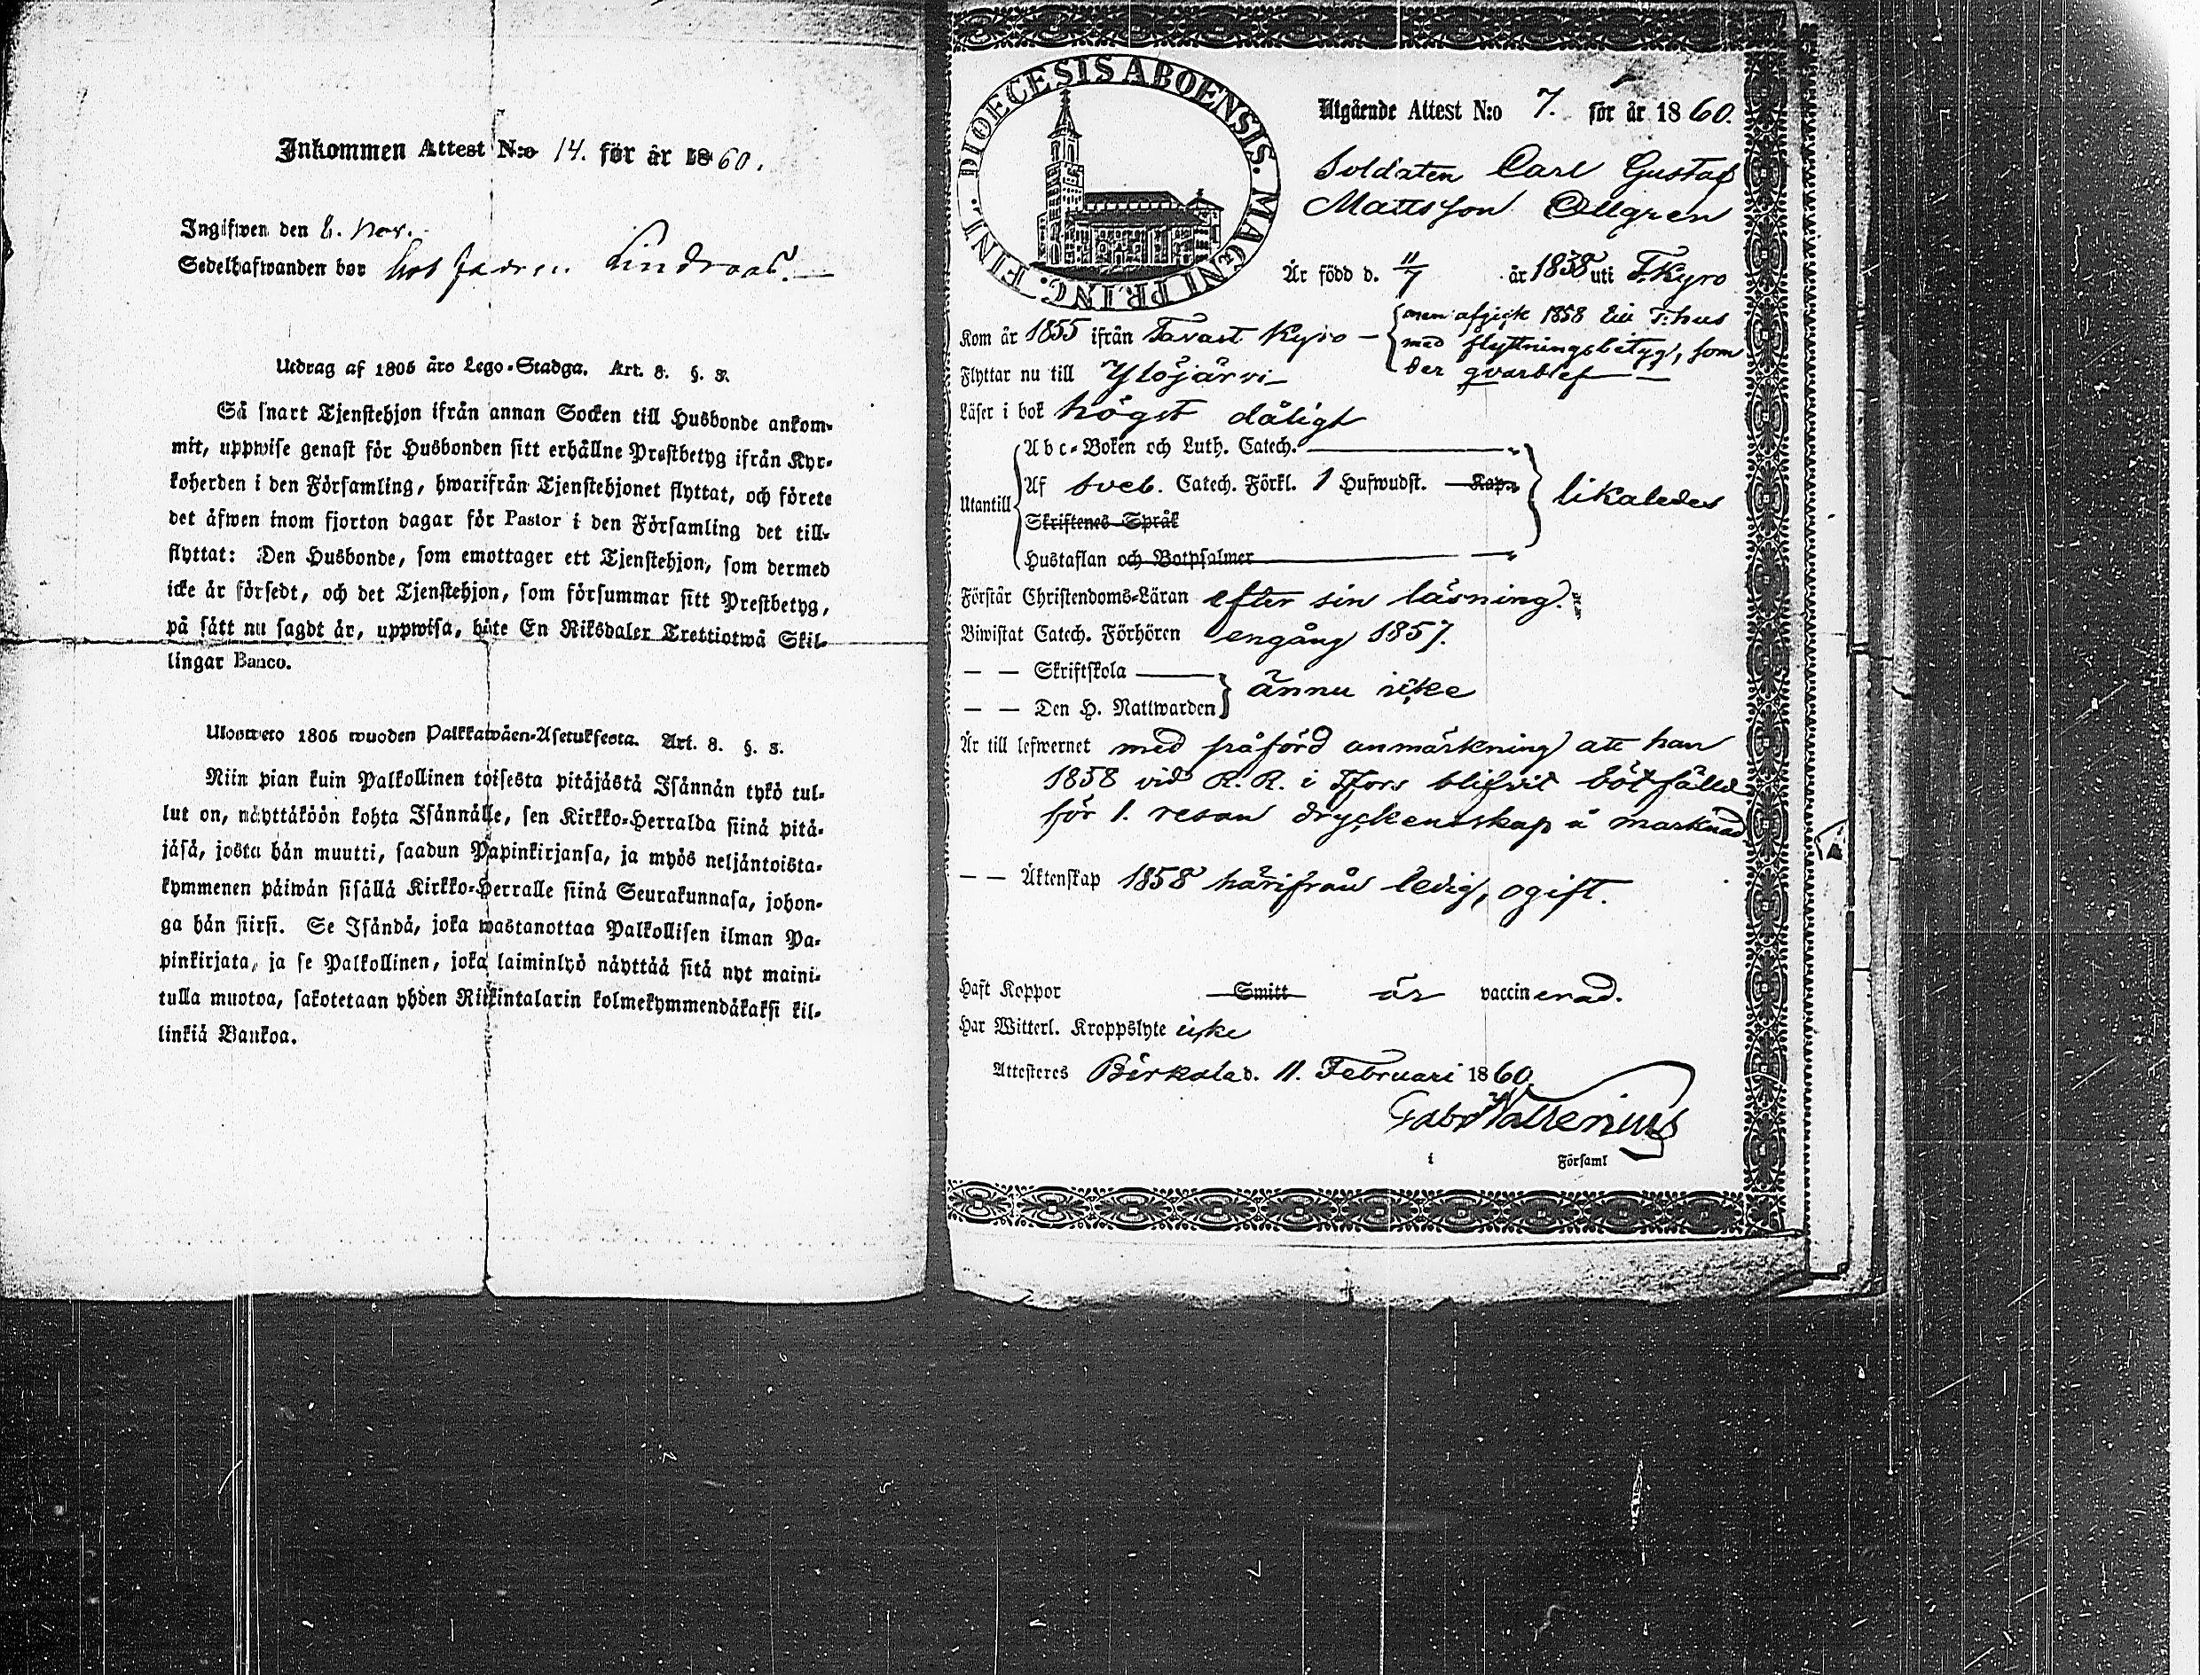 Inkommen Attest N:o 14. för år 1860.
Ingifwen den 6. Nov.
Sedelhafwanden bor hos fadren Lindroos.
Utdrag af 1805 års Lego-Stadga. Art. 8. §. 3.
Så snart Tjenstehjon ifrån annan Socken till Husbonde ankom-
mit, uppwise genast för Husbonden sitt erhållne Prestbetyg ifrån Kyr-
koherden i den Församling, hwarifrån Tjenstehjonet flyttat, och förete
det äfwen inom fjorton dagar för Pastor i den Församling det till-
flyttat: Den Husbonde, som emottager ett Tjenstehjon, som dermed
icke är försedt, och det Tjenstehjon, som försummar sitt Prestbetyg,
på sätt nu sagdt är, uppwisa, böte En Riksdaler Trettiotwå Skil-
lingar Banco.
Ulosweto 1805 wuoden Palkkawäen-Asetuksesta. Art. 8. §. 3.
Niin pian kuin Palkollinen toisesta pitäjästä Isännän tykö tul-
lut on, näyttäköön kohta Isännälle, sen Kirkko-Herralda siinä pitä-
jäsä, josta hän muutti, saadun Papinkirjansa, ja myös neljäntoista-
kymmenen päiwän sisällä Kirkko-Herralle siinä Seurakunnasa, johon-
ga hän siirsi. Se Isändä, joka wastanottaa Palkollisen ilman Pa-
pinkirjata, ja se Palkollinen, joka laiminlyö näyttää sitä nyt maini-
tulla muotoa, sakotetaan yhden Riikintalarin kolmekymmendäkaksi kil-
linkiä Bankoa.
DIOECESIS ABOENSIS. MAGNI PRINC. FINL.
Utgående Attest N:o 7. för år 1860.
Soldaten Carl Gustaf
Mattsson Ollgren
Är född d. 11/7 år 1838 uti T.Kyro
Kom år 1855 ifrån Tavast Kyro — men afgick 1858 till T:hus
med flyttningsbetyg, som
der qvarblef
Flyttar nu till Ylöjärvi
Läser i bok högst dåligt
Utantill
Abc-Boken och Luth. Catech.
Af Sveb. Catech. Förkl. 1 Hufwudst. Kap. likaledes
Skriftenes Språk
Hustaflan och Botpsalmer
Förstår Christendoms-Läran efter sin läsning.
Biwistat Catech. Förhören engång 1857.
— — Skriftskola
— — Den H. Nattwarden ännu icke
Är till lefwernet med påförd anmärkning att han
1858 vid R.R. i Tfors blifvit bötfälld
för 1. resan dryckenskap å marknad
— — Äktenskap 1858 härifrån ledig, ogift.
Haft Koppor Smitt är vaccinerad.
Har Witterl. Kroppslyte icke
Attesteres Birkala d. 11. Februari 1860.
Gabr Wallenius
i Församl